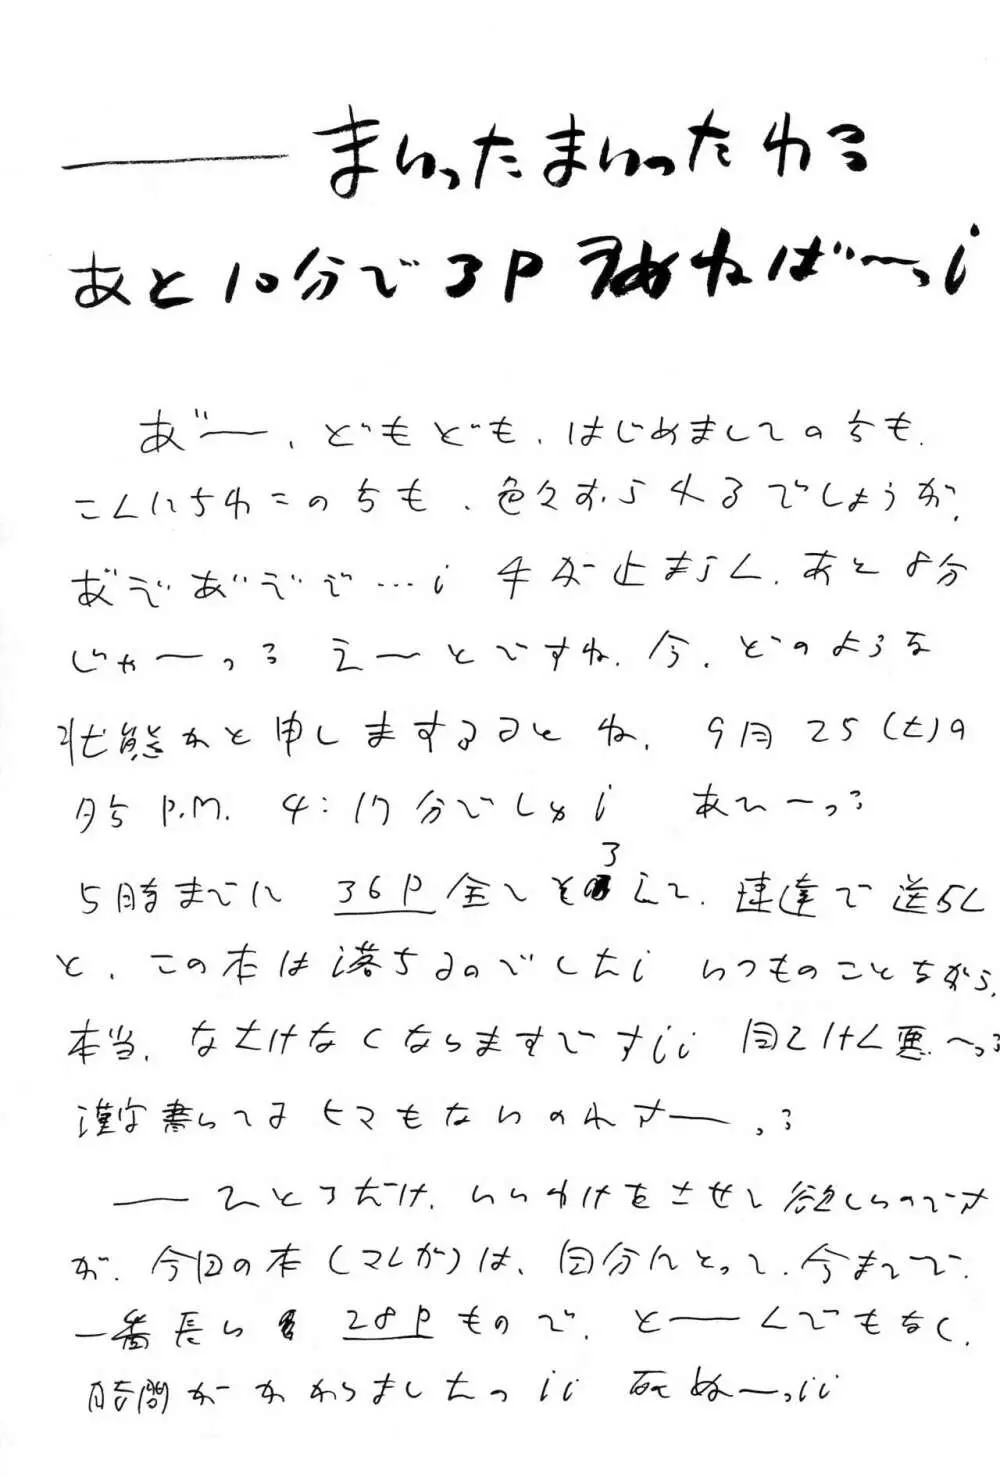 ── まいったまいったわ〜
あと10分で3P うめねば〜っ!
あ゛ー、どもどもも、はじめましての方も、
こんにちわこの方も、色々おられるでしょうが、
あ゛ぞあ゛ぞで…! 手が止まらん、あと8分
じゃーっ! えーとですね、今、どのような
状態かと申しまするとね、9月25(土)の
時 P.M. 4:17分でしょ! あひーっ!
5時までに 36P 全てそろえて、速達で送らん
と、この本は落ちるのでした! いつものことながら、
本当、なさけなくなりますです!! 目つけん悪〜っ!
漢字書いてるヒマもないのれすーっ!
── ひとつだけ、いいわけをさせて欲しいのです
が、今回の本(マンガ)は、自分にとって、今までで、
一番長い 28P もので、と──んでもなく、
時間がかかりましたっ!! 死ぬーっ!!